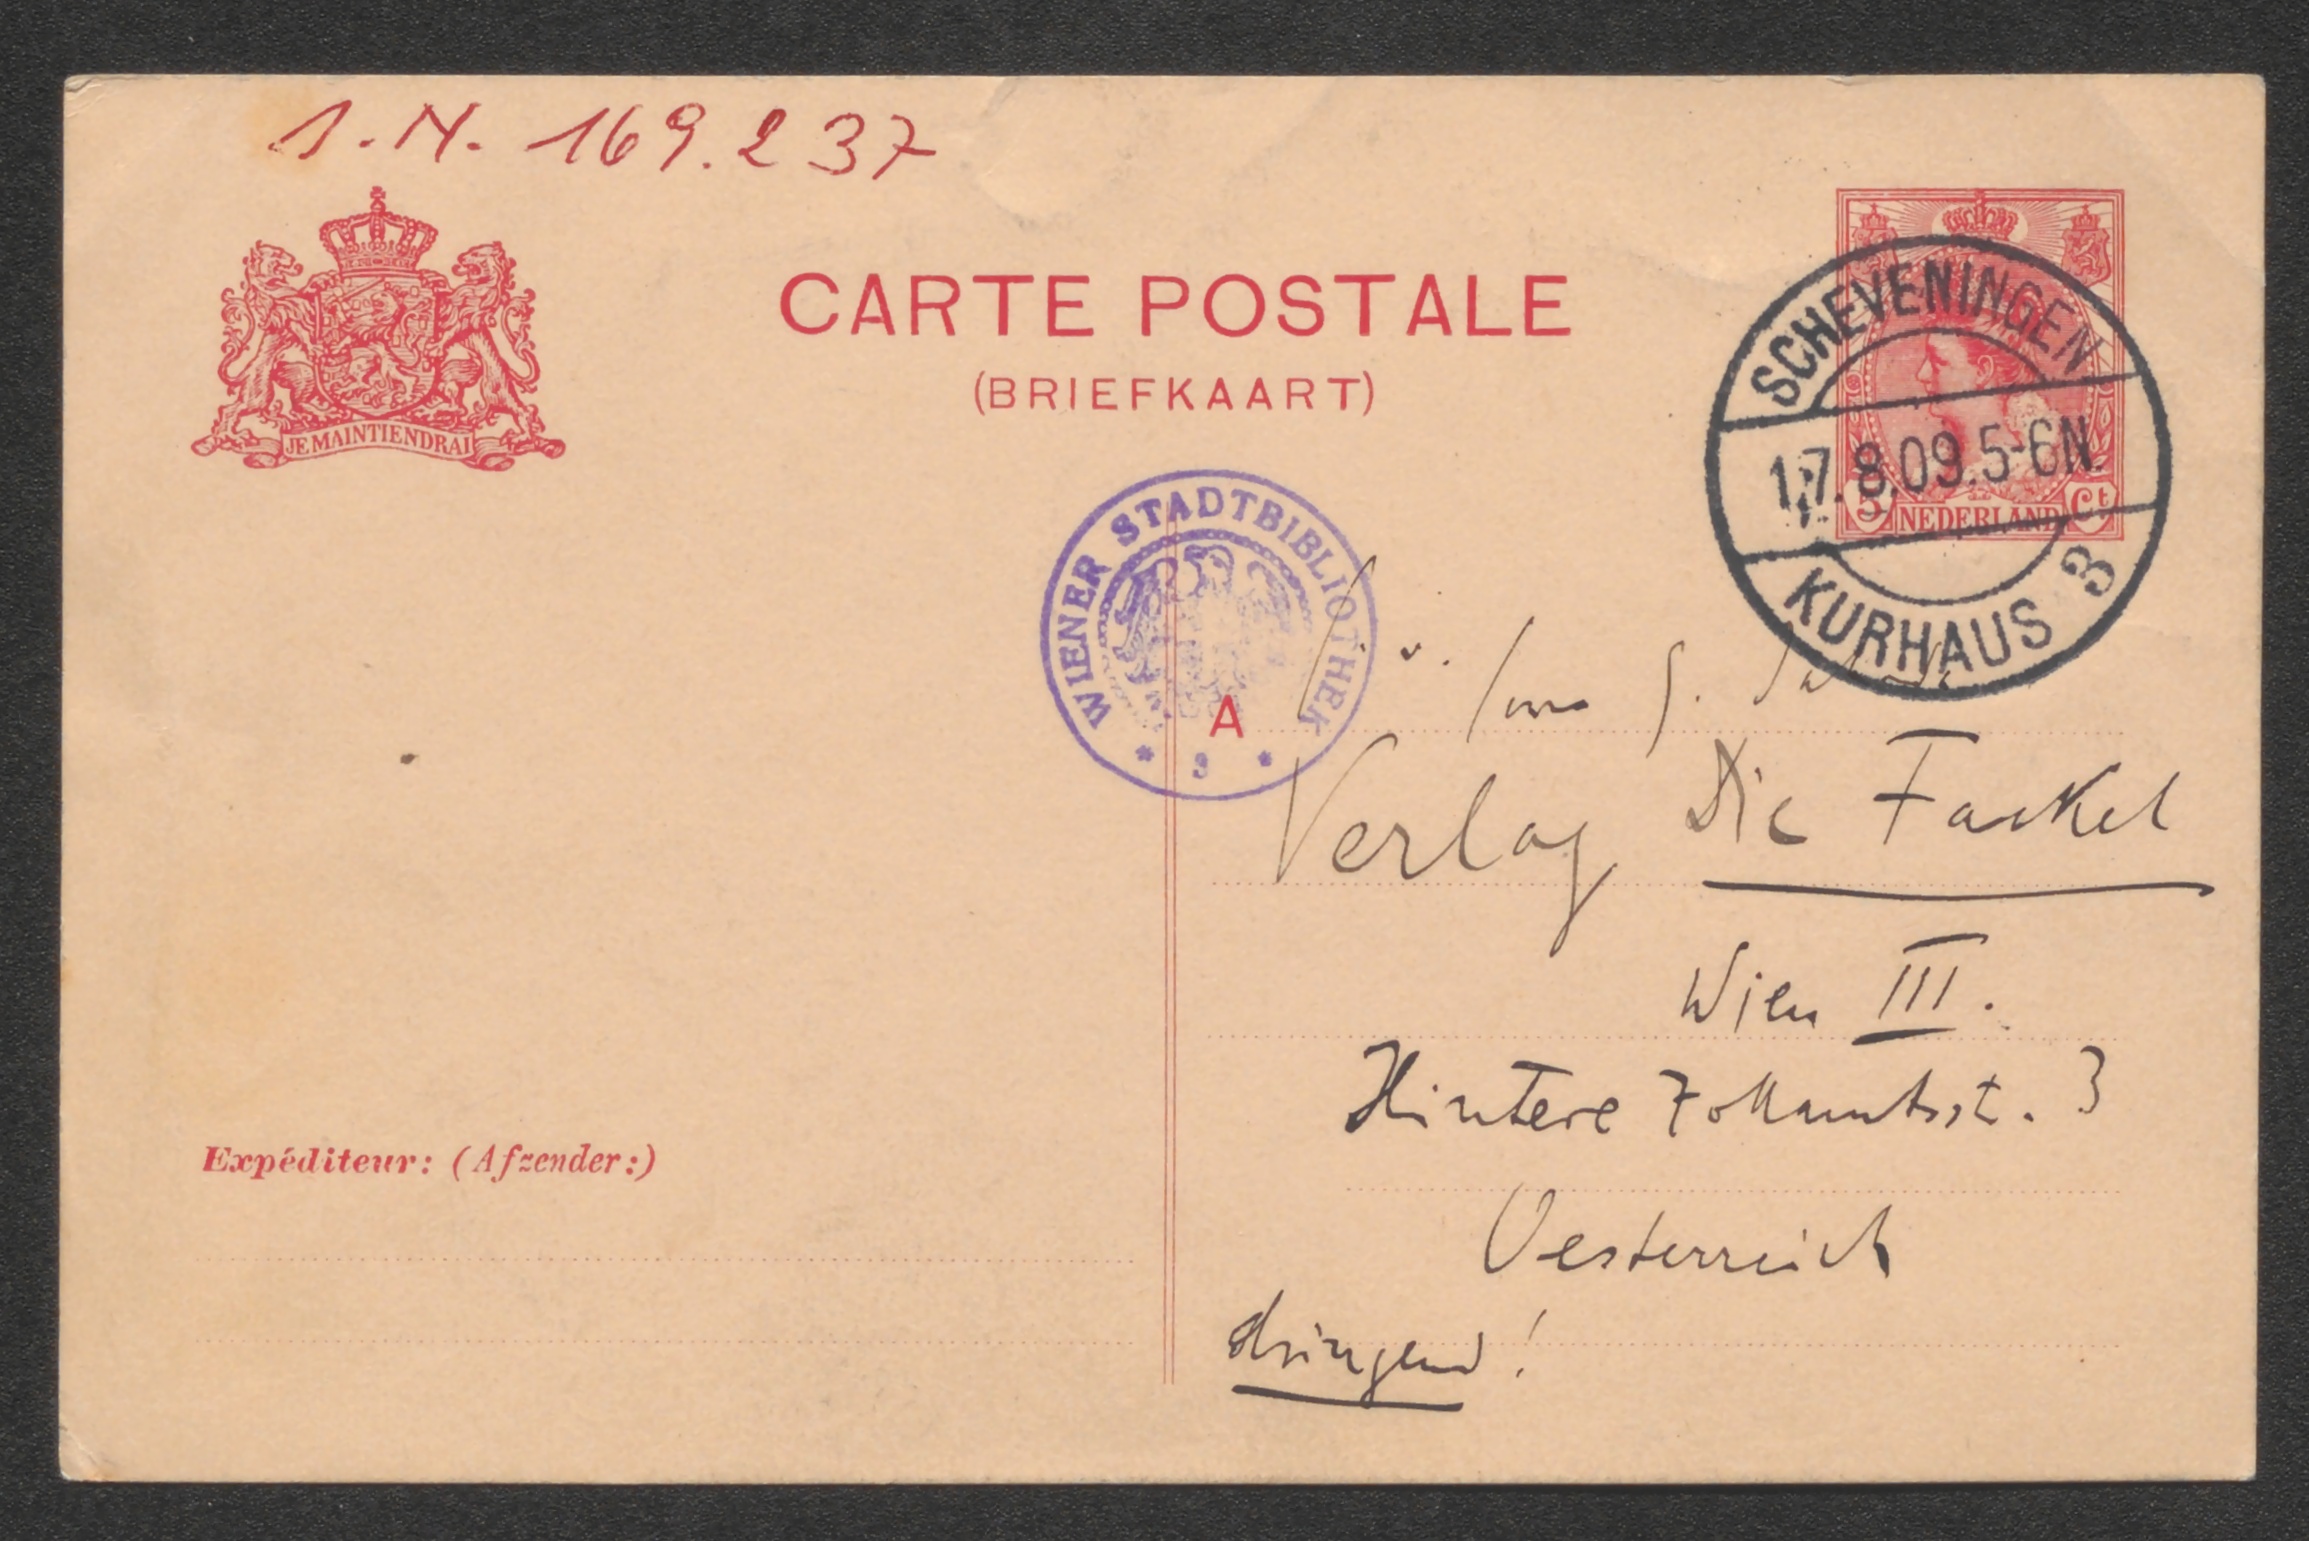 I. N. 169.237
CARTE POSTALE
(BRIEFKAART)
JE MAINTIENDRAI
SCHEVENINGEN
17.8.09.5-6N.
KURHAUS 3
5 Ct
NEDERLAND
WIENER STADTBIBLIOTHEK
A
Verlag Die Fackel
Wien III.
Hintere Zollamtsst. 3
Oesterreich
dringend!
Expéditeur: (Afzender:)